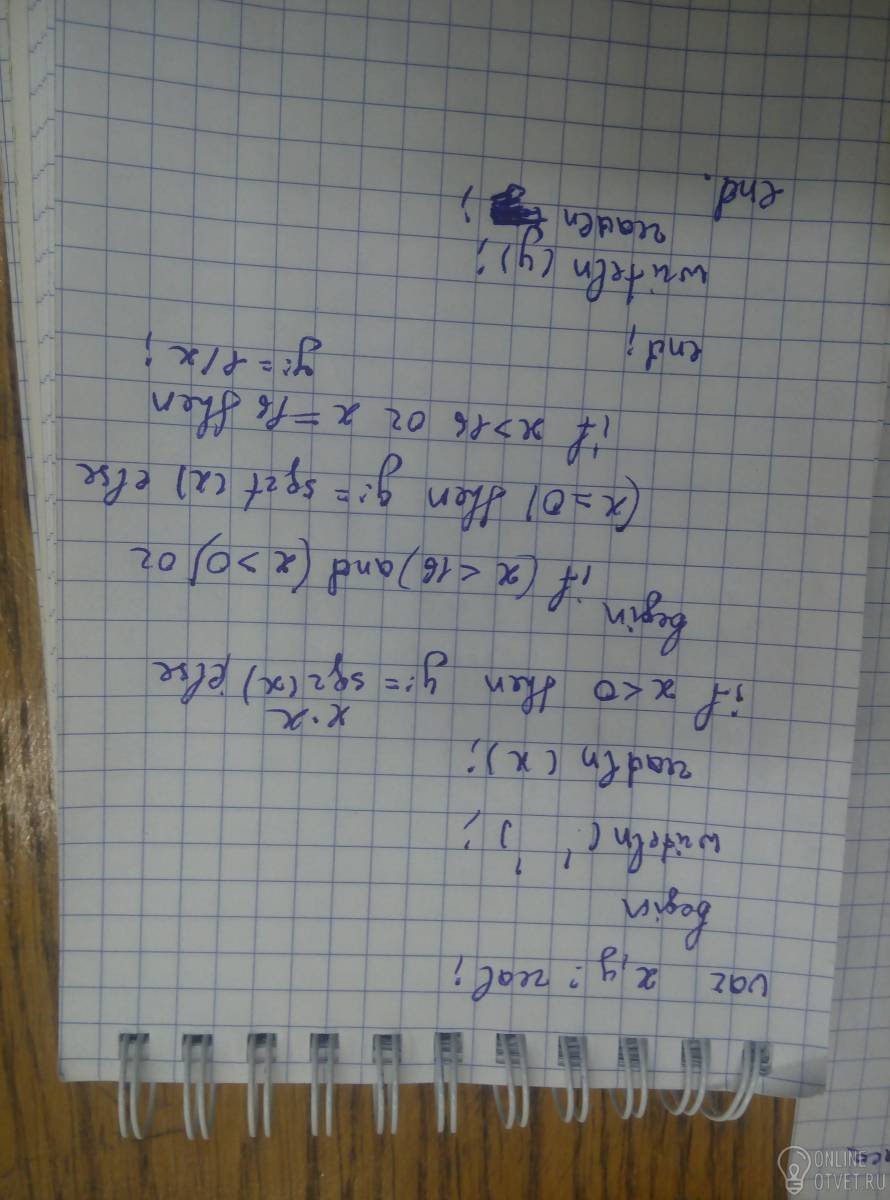 var x,y: real;
begin
writeln (' ');
readln (x);
x·x
if x<0 then y:= sqr(x) else
begin
if (x<16) and (x>0) or
(x=0) then y:= sqrt(x) else
if x>16 or x=16 then
y:=1/x;
end;
writeln (y);
readln ;
end.
ONLINE
OTVET.RU